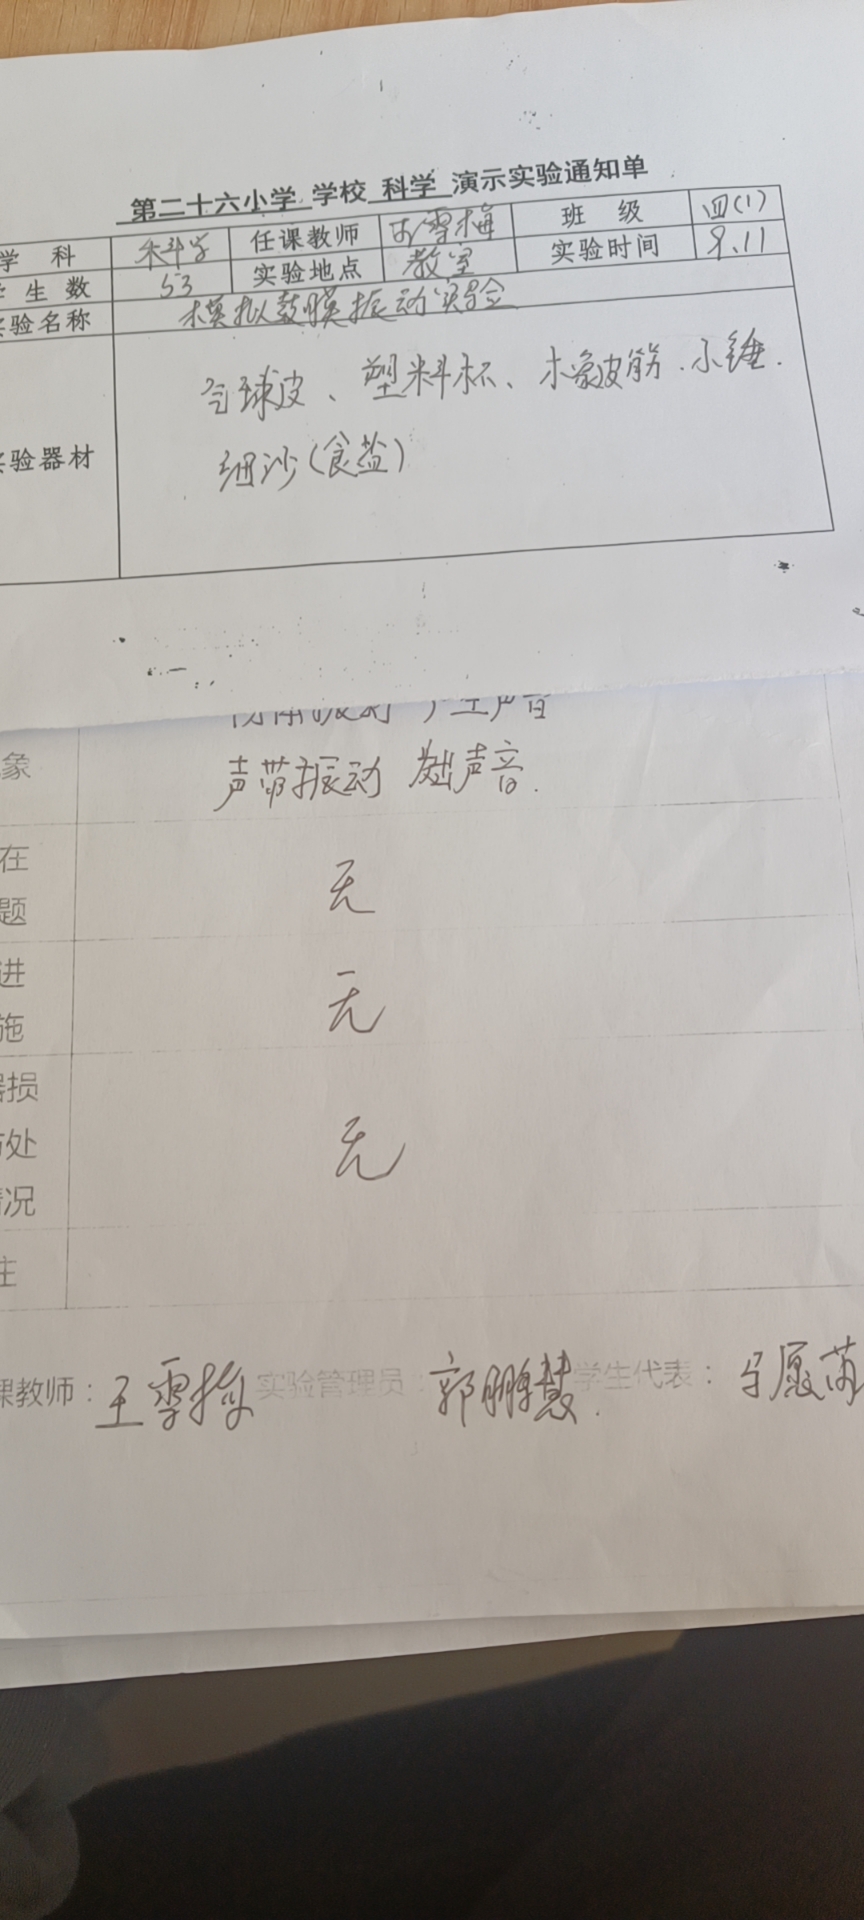 第二十六小学 学校 科学 演示实验通知单
学 科 科学 任课教师 王雪梅 班 级 四(1)
学 生 数 53 实验地点 教室 实验时间 9.11
实验名称 模拟鼓膜振动实验
实验器材 气球皮、塑料杯、橡皮筋、小锤.
细沙(食盐)
产生声音
象 声带振动 发出声音.
在
题 无
进
施 无
器损
处 无
情况
注
课教师: 王雪梅 实验管理员: 郭鹏慧. 学生代表: